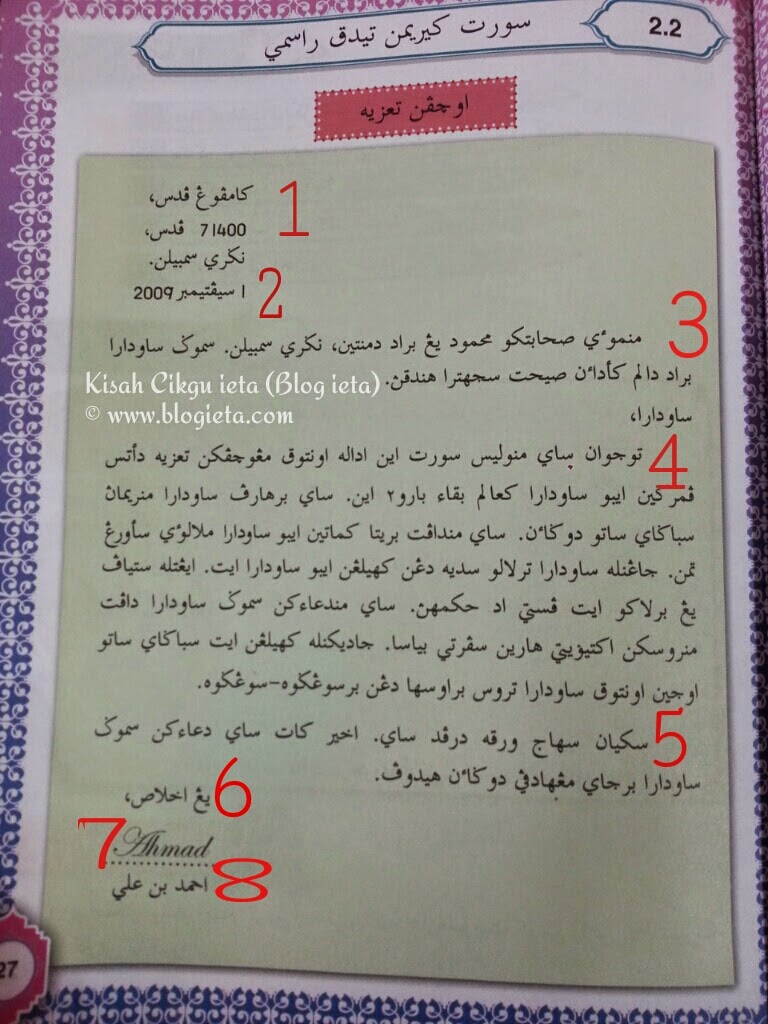 2.2
سورت کيريمن تيدق راسمي
اوچڤن تعزيه
کامڤوڠ ڤدس،
1
71400 ڤدس،
نݢري سمبيلن.
1 سيڤتيمبر 2009
2
3
منموٴي صحابتکو محمود يڠ براد دمنتين، نݢري سمبيلن. سموݢ ساودارا
براد دالم کأداٴن صيحت سجهترا هندقڽ.
Kisah Cikgu ieta (Blog ieta)
© www.blogieta.com
ساودارا،
4
توجوان ساي منوليس سورت اين اداله اونتوق مڠوچڤکن تعزيه دأتس
ڤمرݢين ايبو ساودارا کعالم بقاء بارو٢ اين. ساي برهارڤ ساودارا منريماڽ
سباݢاي ساتو دوݢاٴن. ساي منداڤت بريتا کماتين ايبو ساودارا ملالوٴي سأورڠ
تمن. جاڠنله ساودارا ترلالو سديه دڠن کهيلڠن ايبو ساودارا ايت. ايڠتله ستياڤ
يڠ برلاکو ايت ڤستي اد حکمهڽ. ساي مندعاءکن سموݢ ساودارا داڤت
منروسکن اکتيۏيتي هارين سڤرتي بياسا. جاديکنله کهيلڠن ايت سباݢاي ساتو
اوجين اونتوق ساودارا تروس براوسها دڠن برسوڠݢوه-سوڠݢوه.
5
سکيان سهاج ورقه درڤد ساي. اخير کات ساي دعاءکن سموݢ
ساودارا برجاي مڠهادڤي دوݢاٴن هيدوڤ.
6
يڠ اخلاص،
7
Ahmad
احمد بن علي
8
27